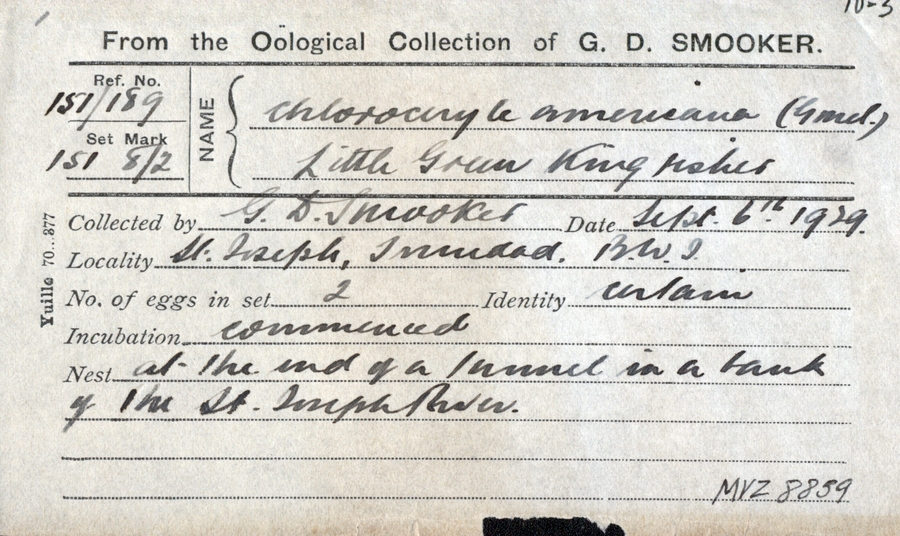 10-3
From the Oölogical Collection of G. D. SMOOKER.
Ref. No.
151/189
Set Mark
151 8/2
NAME
Chloroceryle americana (Gmel.)
Little Green Kingfisher
Collected by G. D. Smooker Date Sept. 6th 1929.
Locality St. Joseph, Trinidad. B.W.I.
No. of eggs in set 2 Identity certain
Incubation commenced
Nest at the end of a tunnel in a bank
of the St. Joseph River.
Yuille 70...877
MVZ 8859